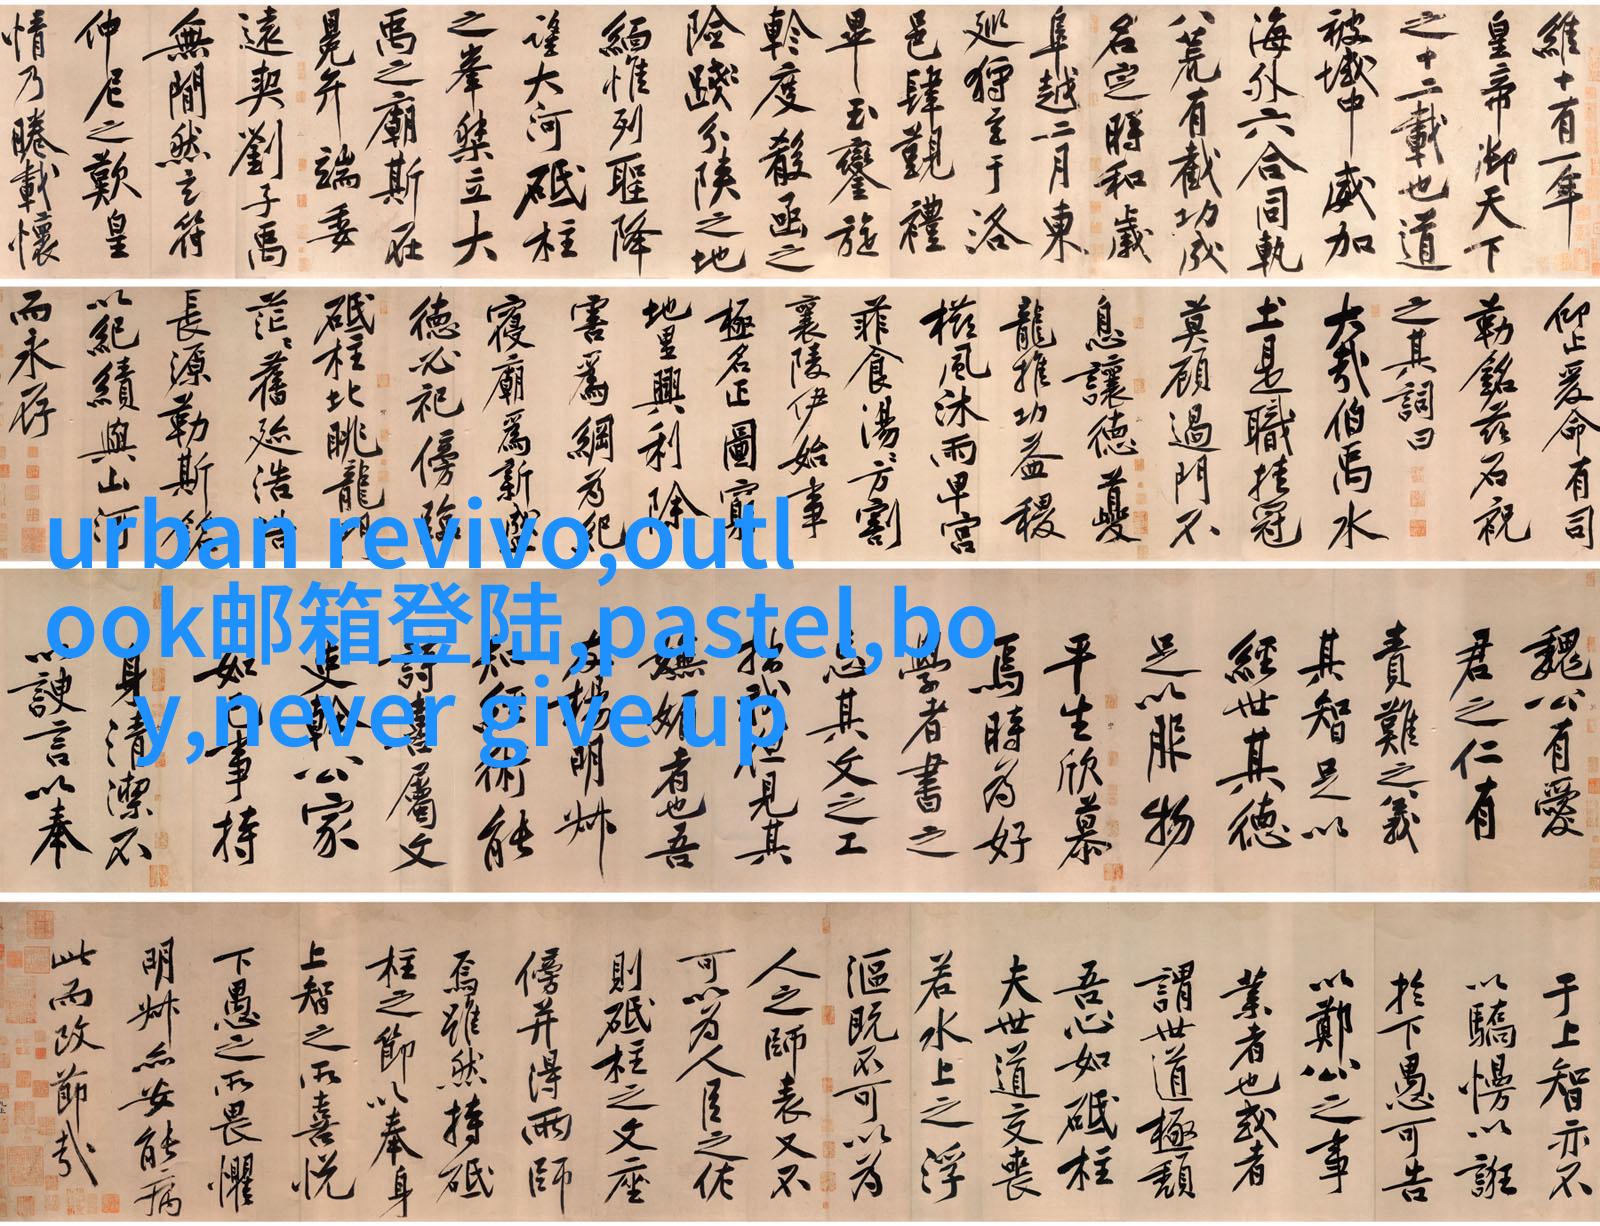 維十有一年
皇帝御天下
之十二載也道
被域中威加
海外六合同軌
八荒有截功成
名定時和歲
阜越二月東
巡狩至于洛
邑肆覲禮
畢玉鑾旋
軫度殽函之
險踐分陝之地
緬惟列聖降
望大河砥柱
之峯桀立大
禹之廟斯在
冕弁端委
遠契劉子禹
無間然玄符
仲尼之歎皇
情乃睠載懷
仰止爰命有司
勒銘茲石祝
之其詞曰
大哉伯禹水
土是職挂冠
莫顧過門不
息讓德夔
龍推功益稷
櫛風沐雨卑宮
菲食湯湯方割
襄陵伊始事
極名正圖窮
地里興利除
害爲綱爲紀
寢廟爲新盛
德必祀傍臨
砥柱北眺龍門
茫茫舊迹浩浩
長源勒斯銘
以紀績與山河
而永存
urban revivo,outl
ook邮箱登陆,pastel,bo
y,never give up
魏公有愛
君之仁有
責難之義
其智足以
經世其德
足以服物
平生欣慕
焉時為好
學者書之
忘其文之工
拙我但見其
嫵媚者也吾
友楊明叔
知經術能
詩喜屬文
吏幹公家
如己事持
身清潔不
以諛言以奉
于上智亦不
以驕慢以誑
於下愚可告
以鄭公之事
業者也或者
謂世道極頹
吾心如砥柱
夫世道交喪
若水上之浮
漚既不可以為
人之師表又不
可以為人臣之佐
則砥柱之文座
傍并得兩師
焉雖然持砥
柱之節以奉身
上智之所喜悅
下愚之所畏懼
明叔亦安能病
此而改節哉